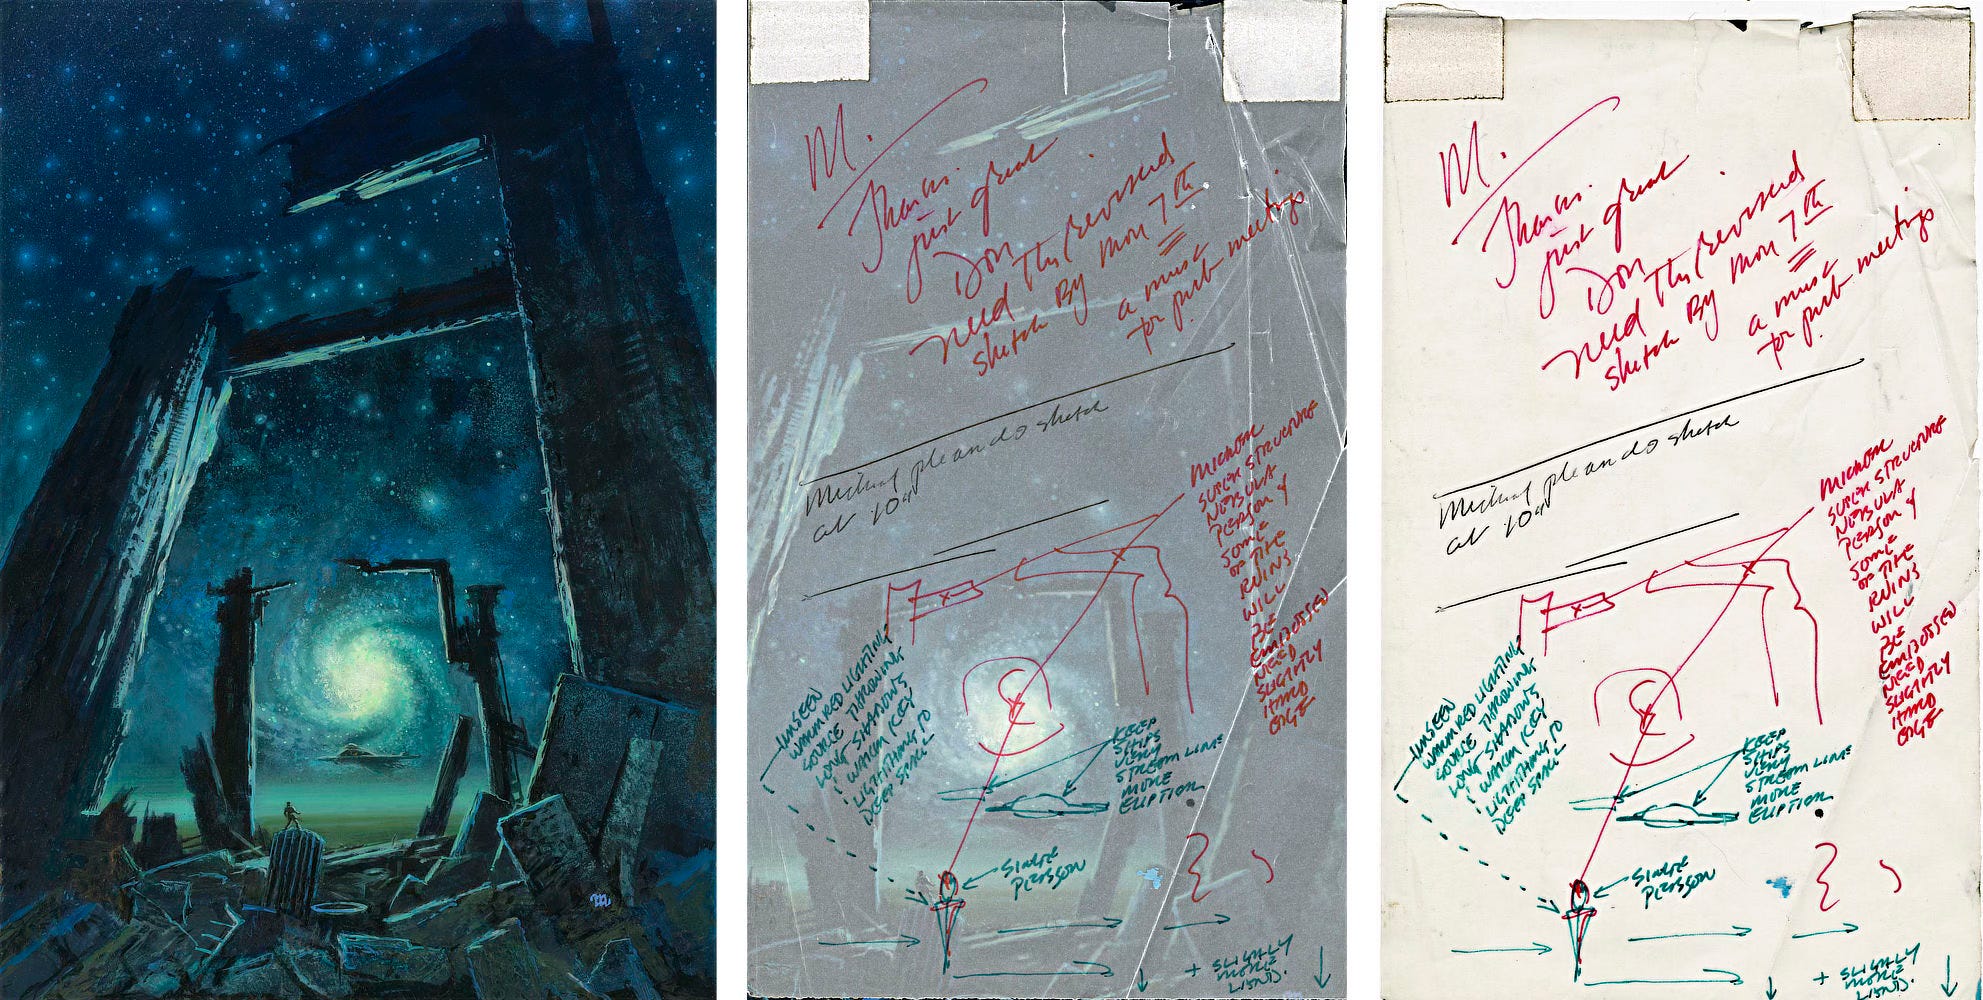 M.
Thanks.
just great
Don
need this revised
sketch By Mon 7th
a must
for pub meetings
Michael please do sketch
at 10"
MICHAEL
SUPER STRUCTURE
NEBULA
PERSON &
SOME
OF THE
RUINS
WILL
BE
EMBOSSED
NEED
SLIGHTLY
HARD
EDGE
UNSEEN
WARM RED LIGHTING
SOURCE THROWING
LONG SHADOWS
WARM KEY
LIGHTNING TO
DEEP SPACE
KEEP
SHIPS
VERY
STREAM LINE
MORE
ELIPTION
SINGLE
PERSSON
+ SLIGHLY
MORE
LIGHTS.
M.
Thanks.
just great
Don
need this revised
sketch By Mon 7th
a must
for pub meetings
Michael please do sketch
at 10"
MICHAEL
SUPER STRUCTURE
NEBULA
PERSON &
SOME
OF THE
RUINS
WILL
BE
EMBOSSED
NEED
SLIGHTLY
HARD
EDGE
UNSEEN
WARM RED LIGHTING
SOURCE THROWING
LONG SHADOWS
WARM KEY
LIGHTNING TO
DEEP SPACE
KEEP
SHIPS
VERY
STREAM LINE
MORE
ELIPTION
SINGLE
PERSSON
+ SLIGHLY
MORE
LIGHTS.